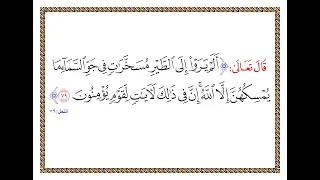 قَالَ تَعَالَىٰ: ﴿أَلَمْ يَرَوْا إِلَى الطَّيْرِ مُسَخَّرَاتٍ فِي جَوِّ السَّمَاءِ مَا
يُمْسِكُهُنَّ إِلَّا اللَّهُ ۗ إِنَّ فِي ذَٰلِكَ لَآيَاتٍ لِقَوْمٍ يُؤْمِنُونَ ۝٧٩﴾
النحل: ٧٩